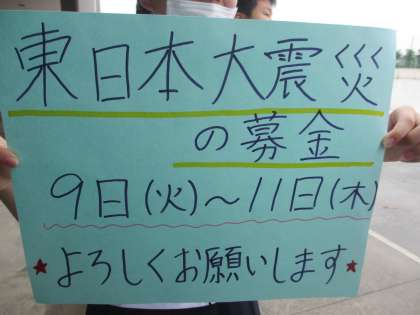 東日本大震災
の募金
9日(火)～11日(木)
★よろしくお願いします★